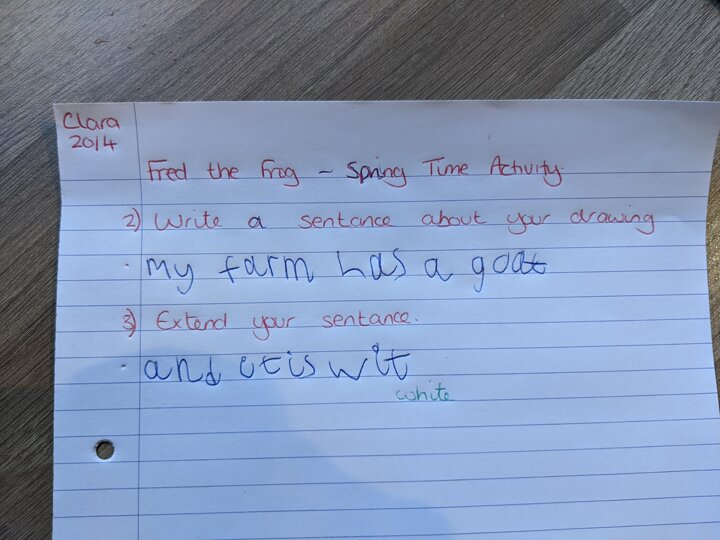 Clara
2014
Fred the Frog - Spring Time Activity.
2) Write a sentance about your drawing
my farm has a goat
3) Extend your sentance.
and it is wit
white